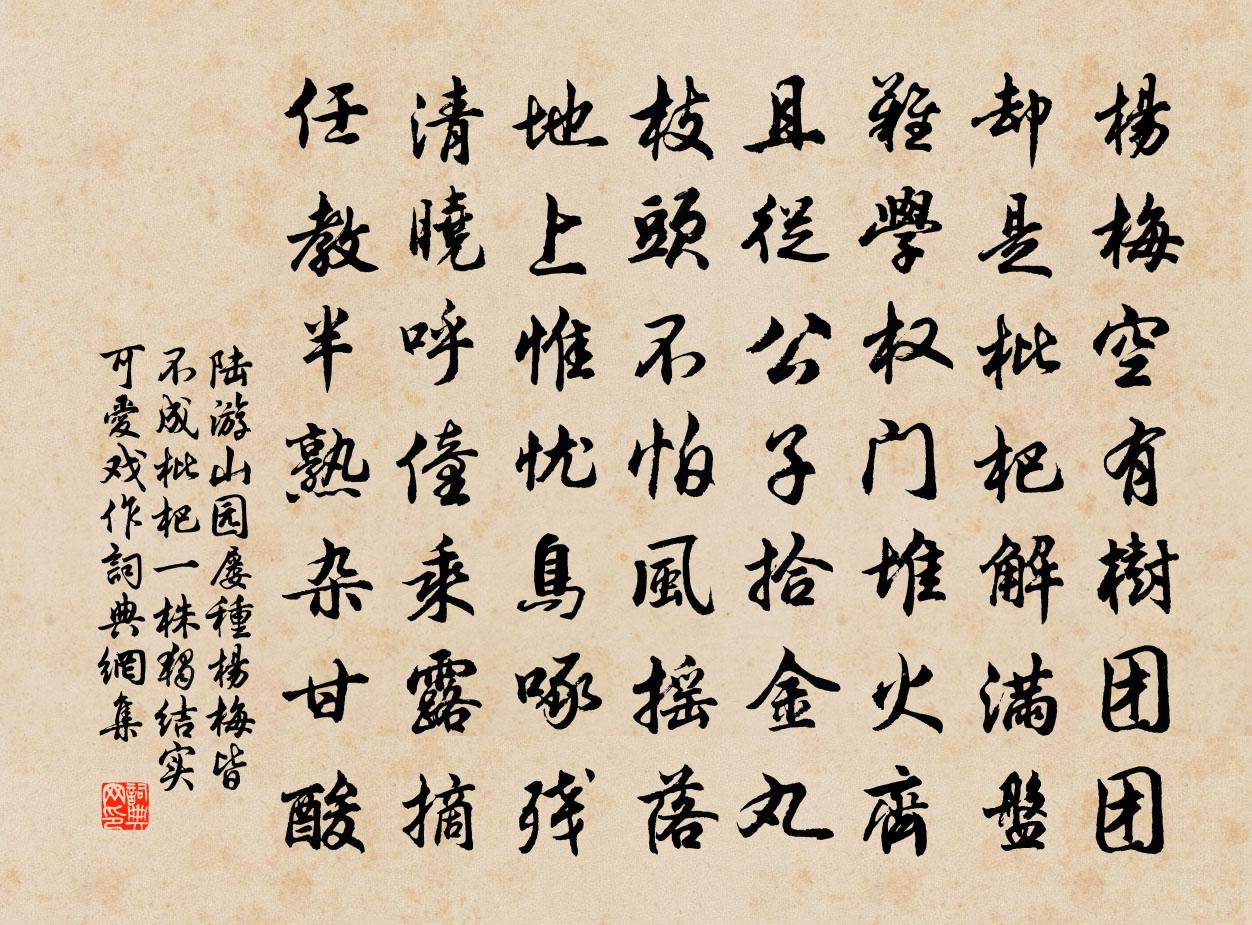 楊梅空有樹团团
却是枇杷解满盤
難學权门堆火齊
且從公子拾金丸
枝頭不怕風摇落
地上惟忧鳥啄残
清曉呼僮乘露摘
任教半熟杂甘酸
陆游山园屡種楊梅皆
不成枇杷一株獨结实
可愛戏作詞典網集
詞典
网印